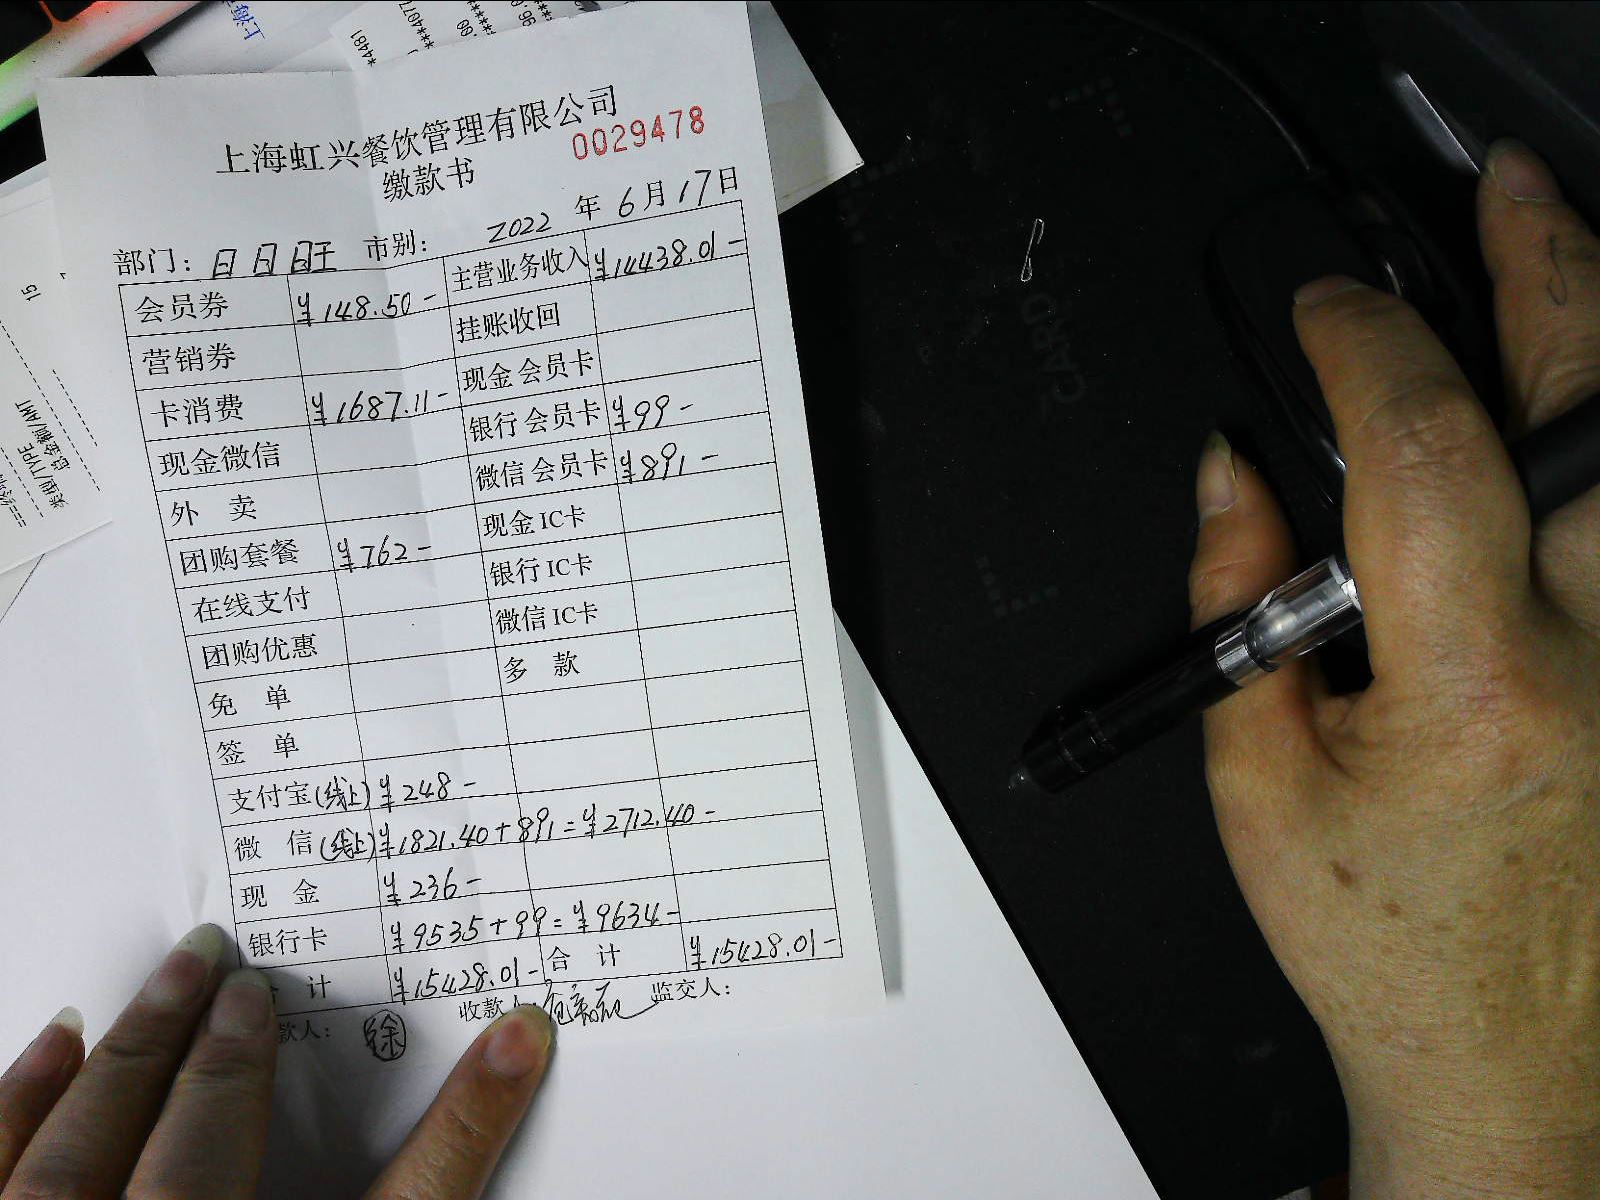 上海虹兴餐饮管理有限公司
0029478
缴款书
2022 年 6 月 17 日
部门: 日日旺 市别:
会员券 ¥148.50- 主营业务收入 ¥14438.01-
营销券 挂账收回
卡消费 ¥1687.11- 现金会员卡
现金微信 银行会员卡 ¥99-
外 卖 微信会员卡 ¥891-
团购套餐 ¥762- 现金IC卡
在线支付 银行IC卡
团购优惠 微信IC卡
免 单 多 款
签 单
支付宝(线上) ¥248-
微 信(线上) ¥1821.40+891=¥2712.40-
现 金 ¥236-
银行卡 ¥9535+99=¥9634-
计 ¥15428.01- 合 计 ¥15428.01-
款人: 徐 收款人: 监交人:
CARD
类型/TYPE
总金额/AMT
15
*4481